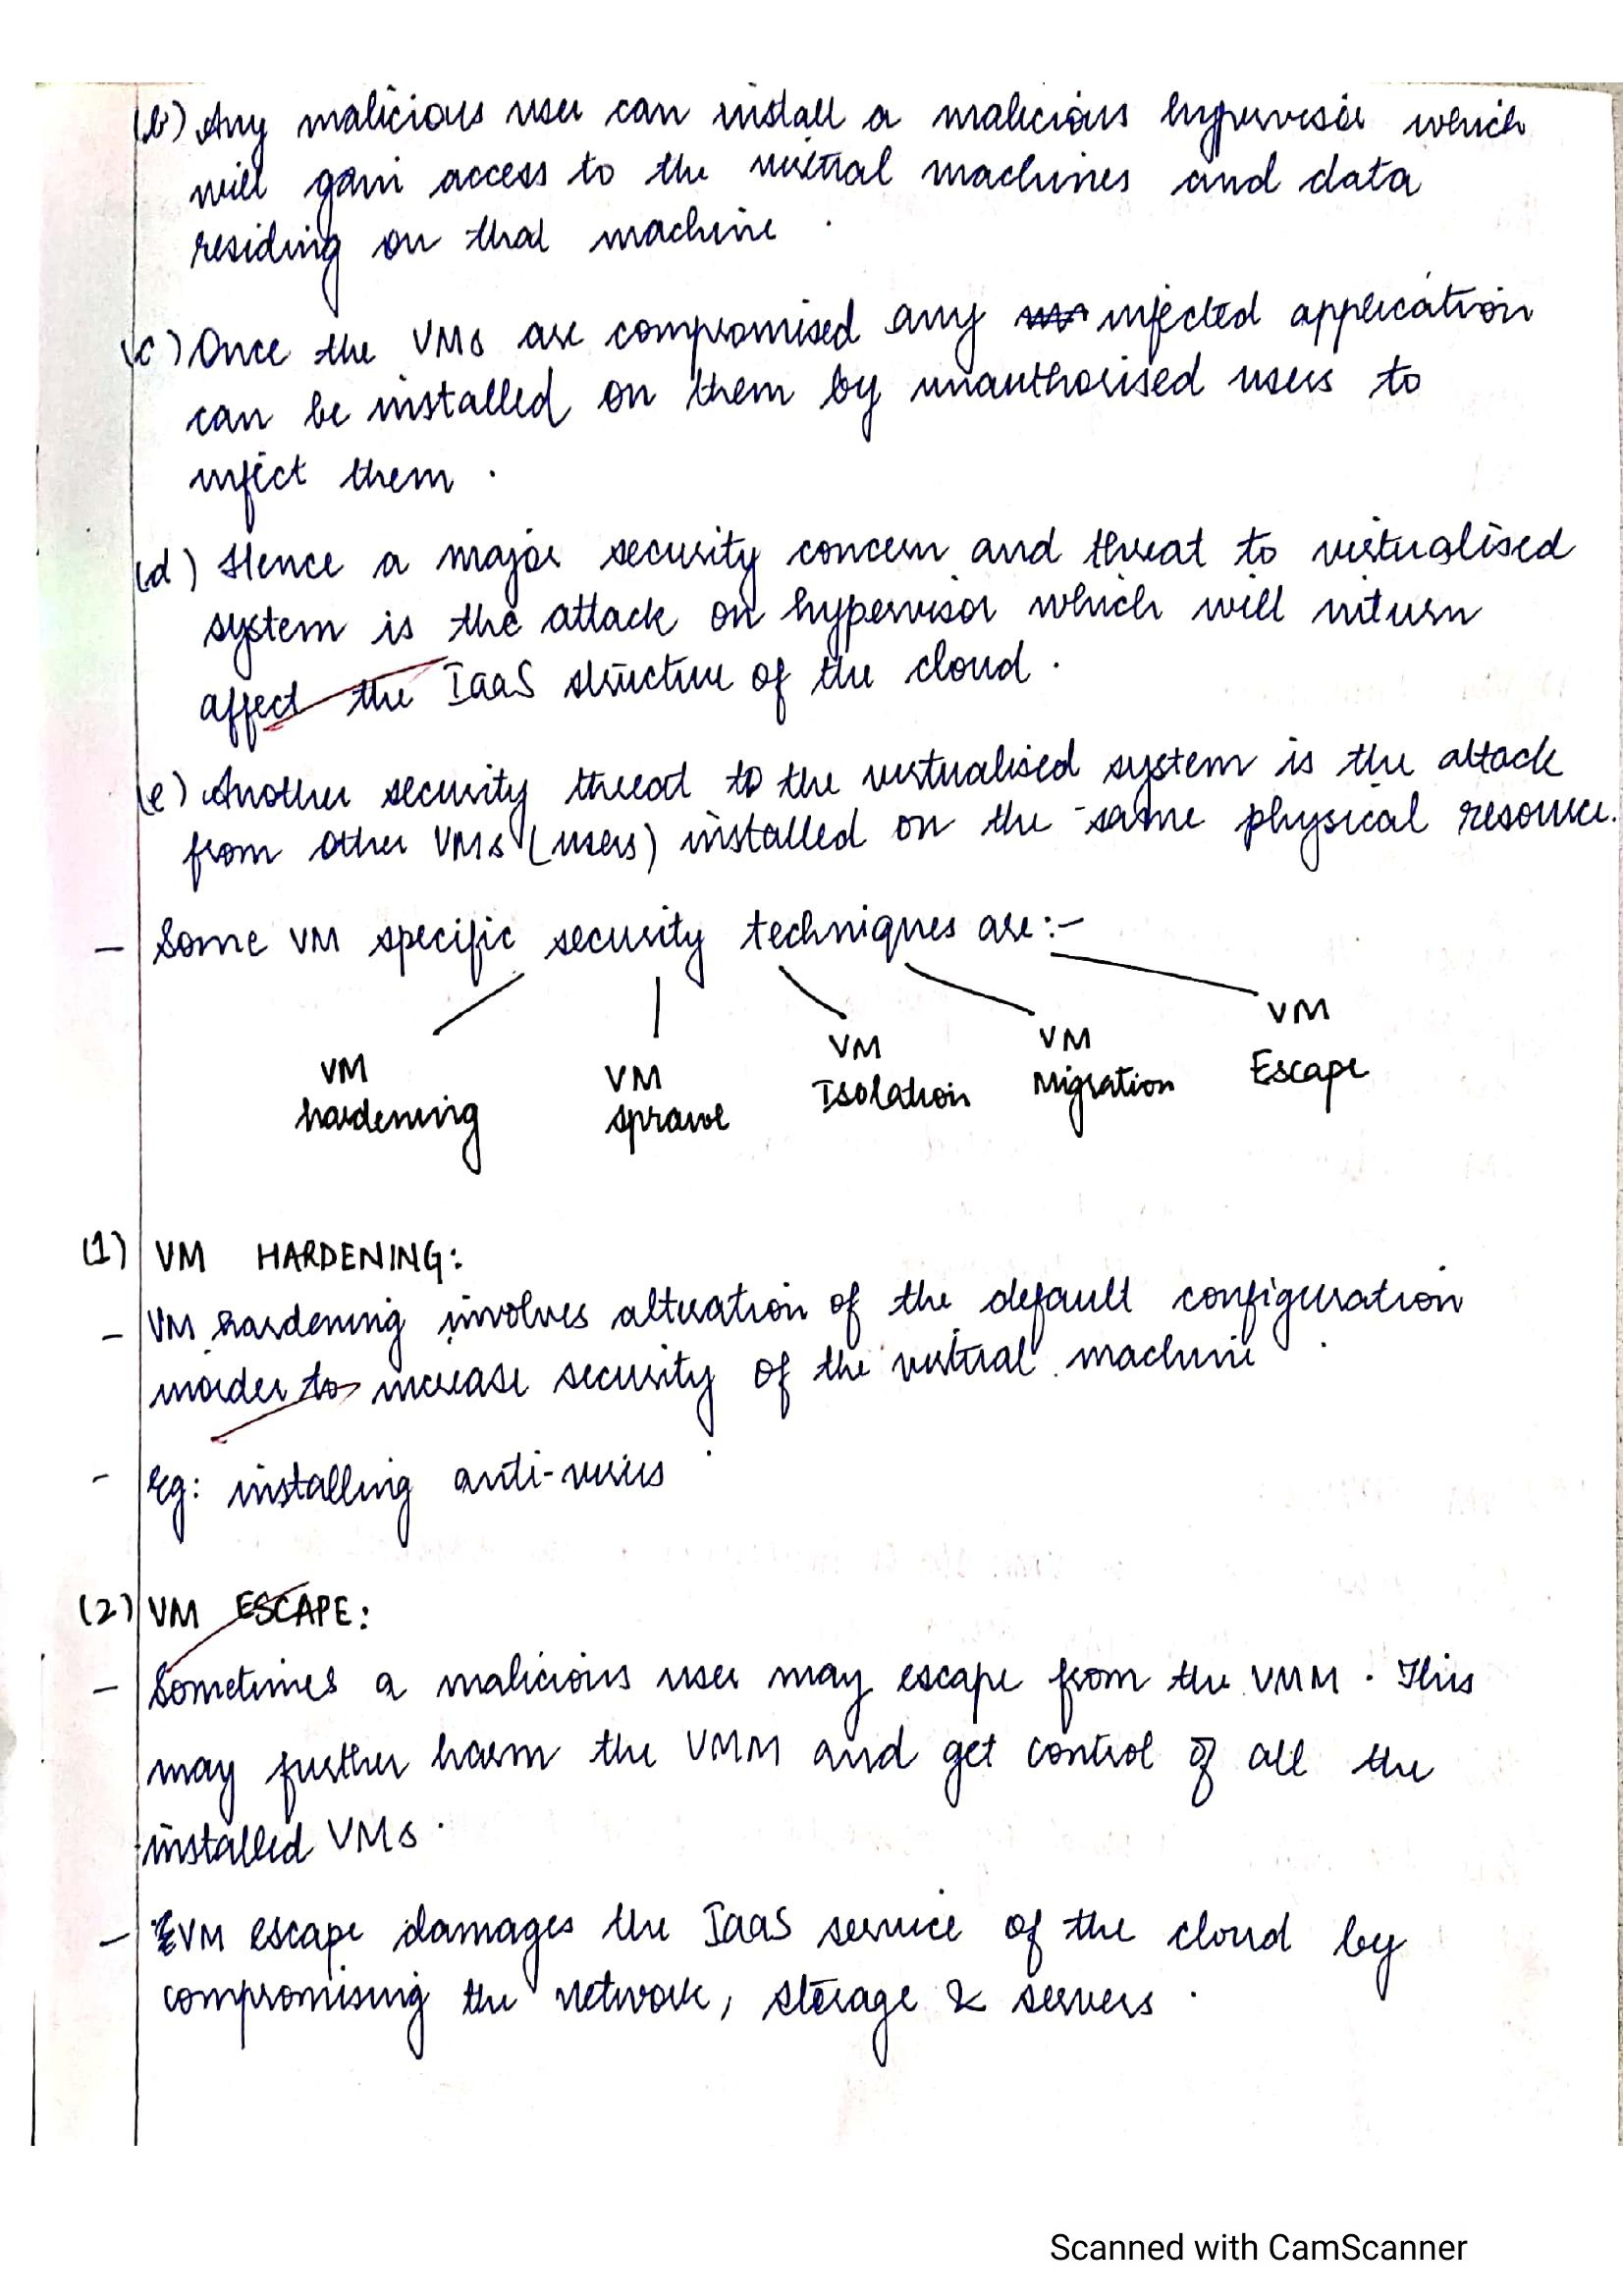 (b) Any malicious user can install a malicious hypervisor which
will gain access to the virtual machines and data
residing on that machine .
(c) Once the VMs are compromised any infected application
can be installed on them by unauthorised users to
infect them .
(d) Hence a major security concern and threat to virtualised
system is the attack on hypervisor which will inturn
affect the IaaS structure of the cloud .
(e) Another security threat to the virtualised system is the attack
from other VMs (users) installed on the same physical resource.
- Some VM specific security techniques are:-
VM hardening
VM sprawl
VM Isolation
VM Migration
VM Escape
(1) VM HARDENING:
- VM hardening involves alteration of the default configuration
inorder to increase security of the virtual machine .
- Eg: installing anti-virus
(2) VM ESCAPE:
- Sometimes a malicious user may escape from the VMM . This
may further harm the VMM and get control of all the
installed VMs .
- VM escape damages the IaaS service of the cloud by
compromising the network, storage & servers .
Scanned with CamScanner